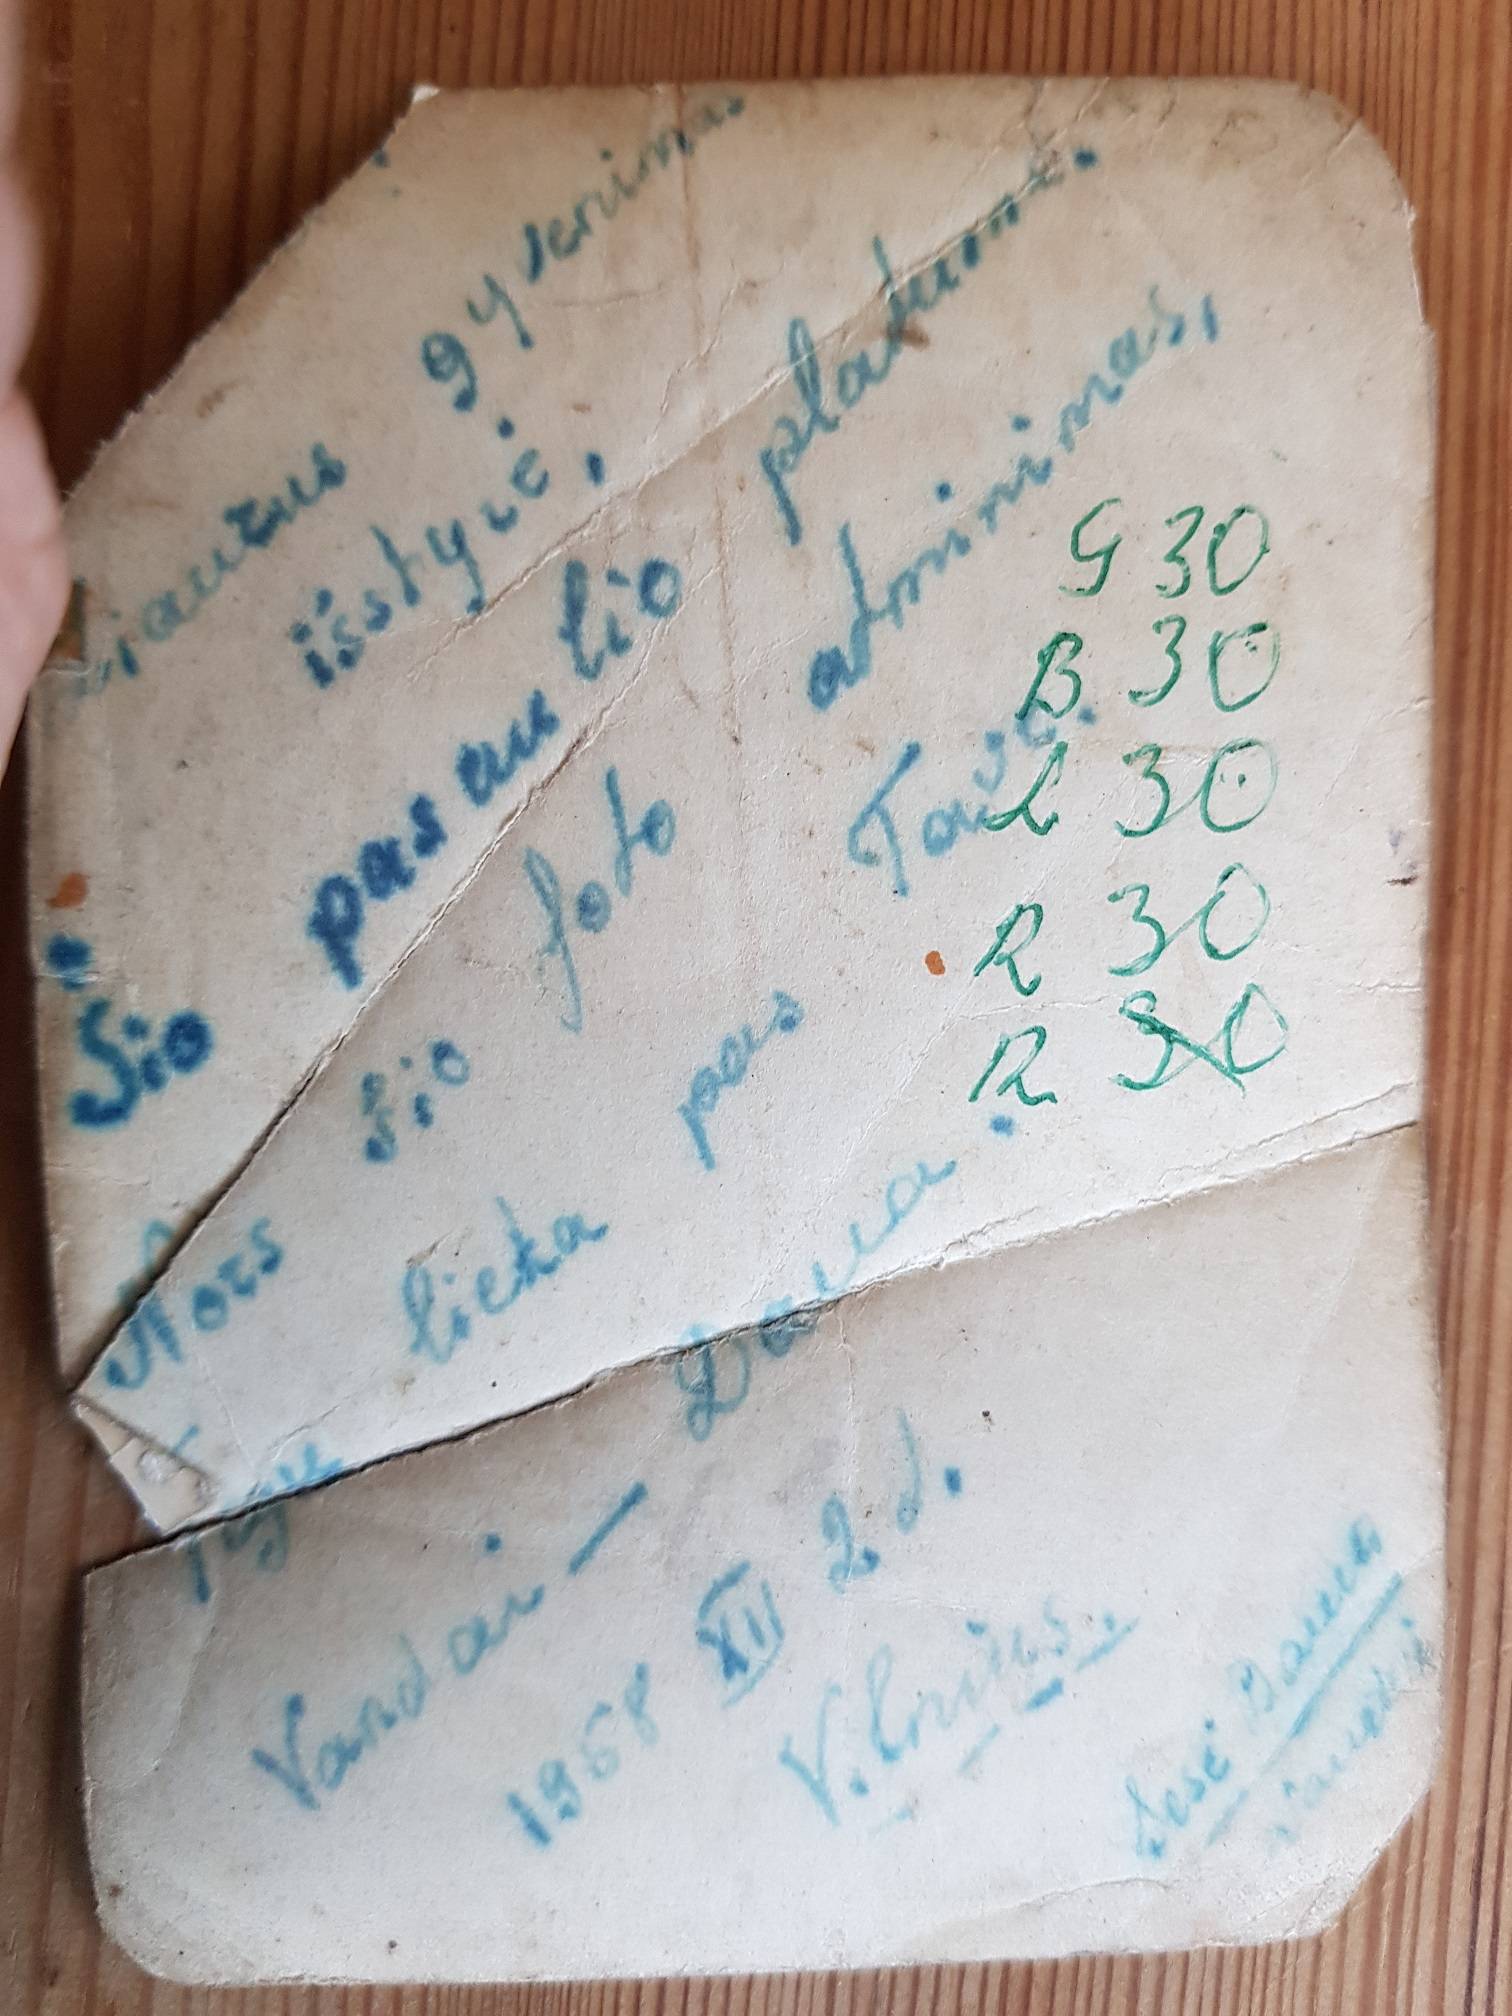 Siautus gyvenimas
išstyżė,
Šio pasaulio platumi.
Nors šio foto atminimas,
Tegu lieka pas Tavę.
Vandai — Danua.
1958 XII 2 d.
Vilnius.
Sesė Danua
G 30
B 30
L 30
R 30
R 30